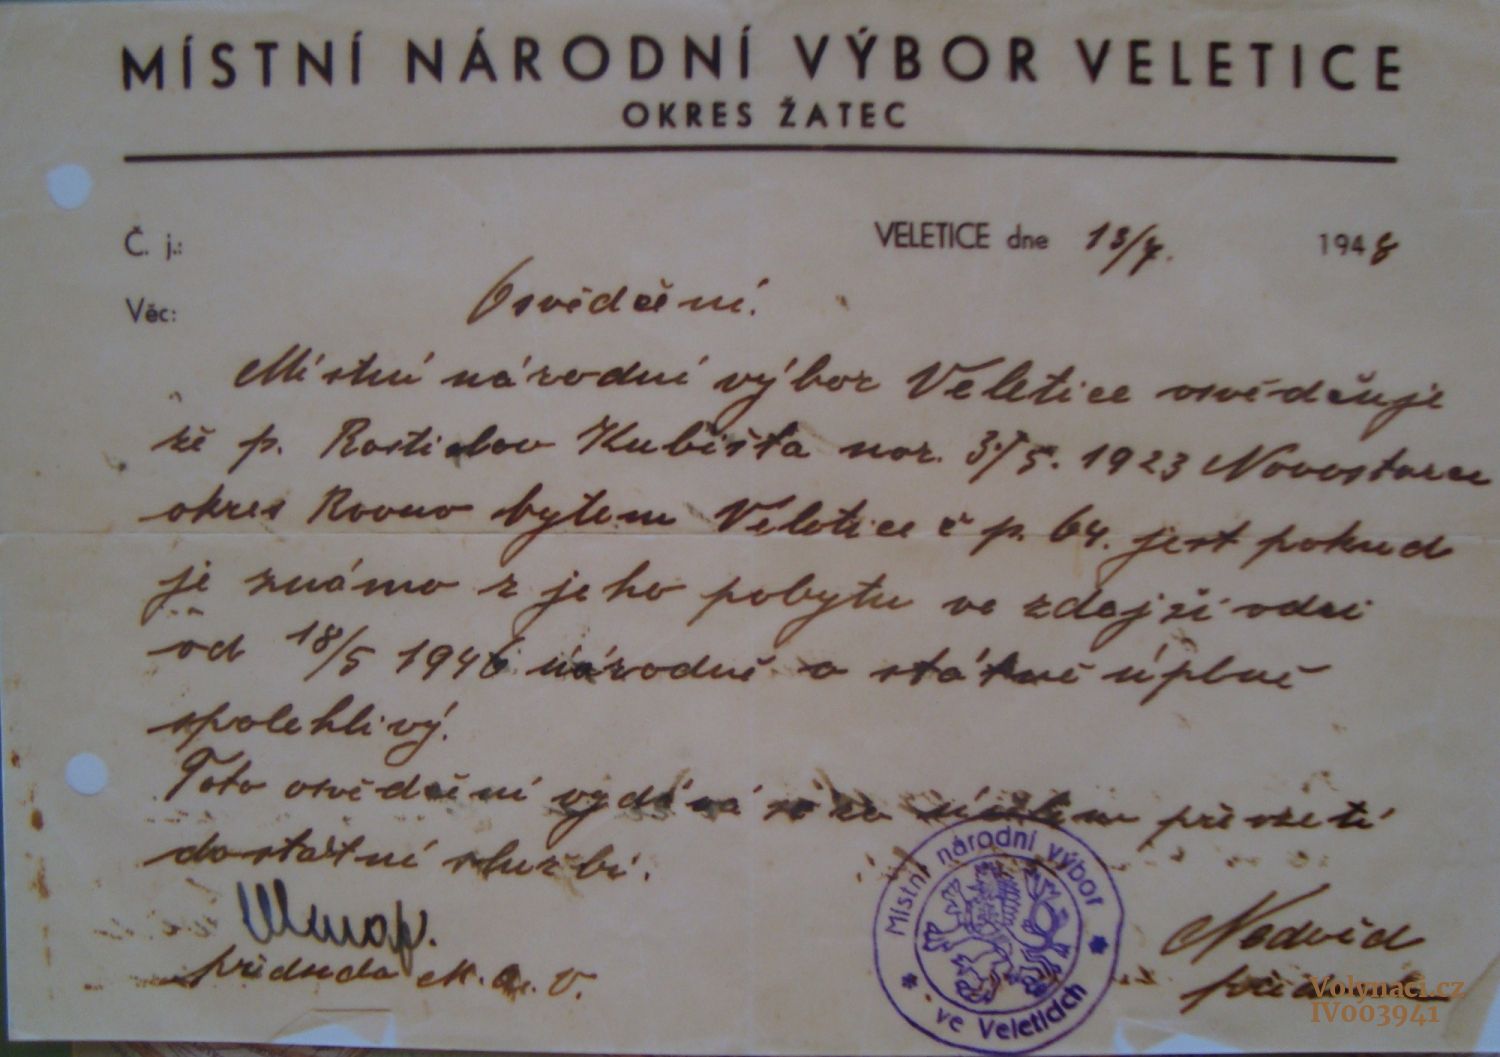 MÍSTNÍ NÁRODNÍ VÝBOR VELETICE
OKRES ŽATEC
Č. j.:
VELETICE dne 13/7. 1948
Věc:
Osvědčení.
Místní národní výbor Veletice osvědčuje
že p. Rostislav Kubišta nar. 31/5. 1923 Novostavce
okres Rovno bytem Veletice č p. 64. jest pokud
je známo z jeho pobytu ve zdejší vdsi
od 18/5 1946 národně a státně úplně
spolehlivý.
Toto osvědčení vydává se za účelem převzetí
do státní službi.
předseda M.a.V.
Nedvěd
předseda
Místní národní výbor
ve Veleticích
Volynaci.cz
IV003941